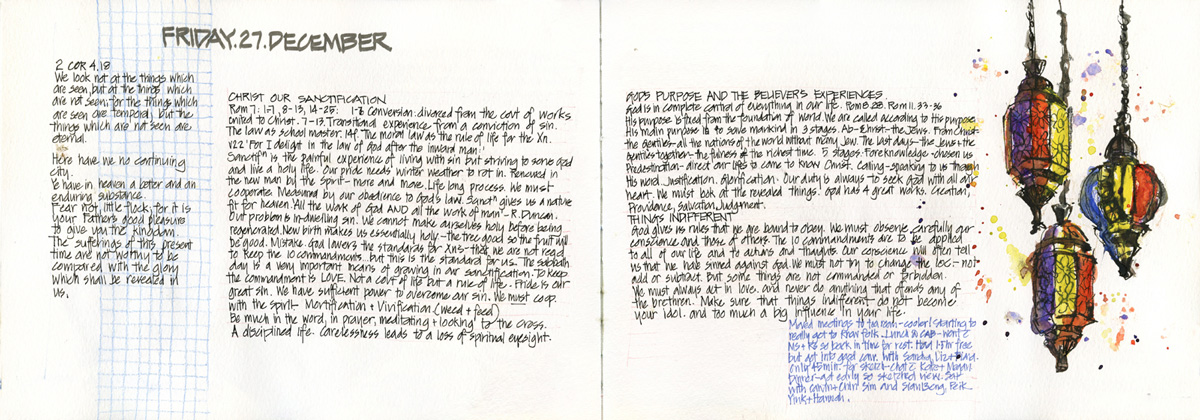 FRIDAY.27.DECEMBER
2 COR 4.18
We look not at the things which
are seen, but at the things which
are not seen; for the things which
are seen are temporal, but the
things which are not seen are
eternal.
Here have we no continuing
city.
Ye have in heaven a better and an
enduring substance.
Fear not, little flock; for it is
your Father's good pleasure
to give you the kingdom.
The sufferings of this present
time are not worthy to be
compared with the glory
which shall be revealed in
us.
CHRIST OUR SANCTIFICATION
Rom 7: 1-7, 8-13, 14-25: 1-6 Conversion: divorced from the cov't of works
united to Christ. 7-13. Transitional experience from a conviction of sin.
The law as school master. 14f. The moral law as the rule of life for the Xn.
v22 'For I delight in the law of God after the inward man:'
Sanctifn is the painful experience of living with sin but striving to serve God
and live a holy life. Our pride needs winter weather to rot in. Renewed in
the new man by the spirit - more and more. Life long process. We must
cooperate. Measured by our obedience to God's law. Sanctn gives us a native
fit for heaven. 'All the work of God AND all the work of man' - R. Duncan.
But problem is in-dwelling sin. We cannot make ourselves holy before being
regenerated. New birth makes us essentially holy - the tree good so the fruit will
be good. Mistake: God lowers the standards for Xns - that we are not req'd
to keep the 10 commandments.. but this is the standard for us. The sabbath
day is a very important means of growing in our sanctification. To keep
the commandments is LOVE. Not a cov't of life but a rule of life. Pride is our
great sin. We have sufficient power to overcome our sin. We must coop.
with the spirit - Mortification + Vivification. (weed + feed)
Be much in the word, in prayer, meditating + looking to the cross.
A disciplined life. Carelessness leads to a loss of spiritual eyesight.
GOD'S PURPOSE AND THE BELIEVER'S EXPERIENCES
God is in complete control of everything in our life. Rom 8. 28. Rom 11. 33-36
His purpose is fixed from the foundation of world. We are called according to His purpose
His main purpose is to save mankind in 3 stages. Ab-Christ - the Jews. From Christ-
the Gentiles - all the nations of the world without many Jew. The last days - the Jews + the
Gentiles together - the fulness of the richest time. 5 stages. Foreknowledge - chosen us
Predestination - direct our lives to come to know Christ. Calling - speaking to us through
His word. Justification. Glorification. Our duty is always to seek God with all our
heart. We must look at the revealed things! God has 4 great works. Creation,
Providence, Salvation, Judgment.
THINGS INDIFFERENT
God gives us rules that we are bound to obey. We must observe carefully our
conscience and those of others. The 10 commandments are to be applied
to all of our life and to actions and thoughts. Our conscience will often tell
us that we have sinned against God. We must not try to change the law - not
add or subtract. But some things are not commanded or forbidden.
We must always act in love. and never do anything that offends any of
the brethren. Make sure that things indifferent do not become
your idol. and too much a big influence in your life.
Moved meetings to tea room - cooler! Starting to
really get to know folk. Lunch @ CAB - won't 2
so back in time for rest. Had 1-1hr free
but got into good conv. with Sandra, Liz +
Only 45min. for sketch - chat 2 Katie + Megan
Dinner - got early so sketched view. Sat
with Gavin + Chin Sim and Sian Beng, Peik
Yink + Hannah.